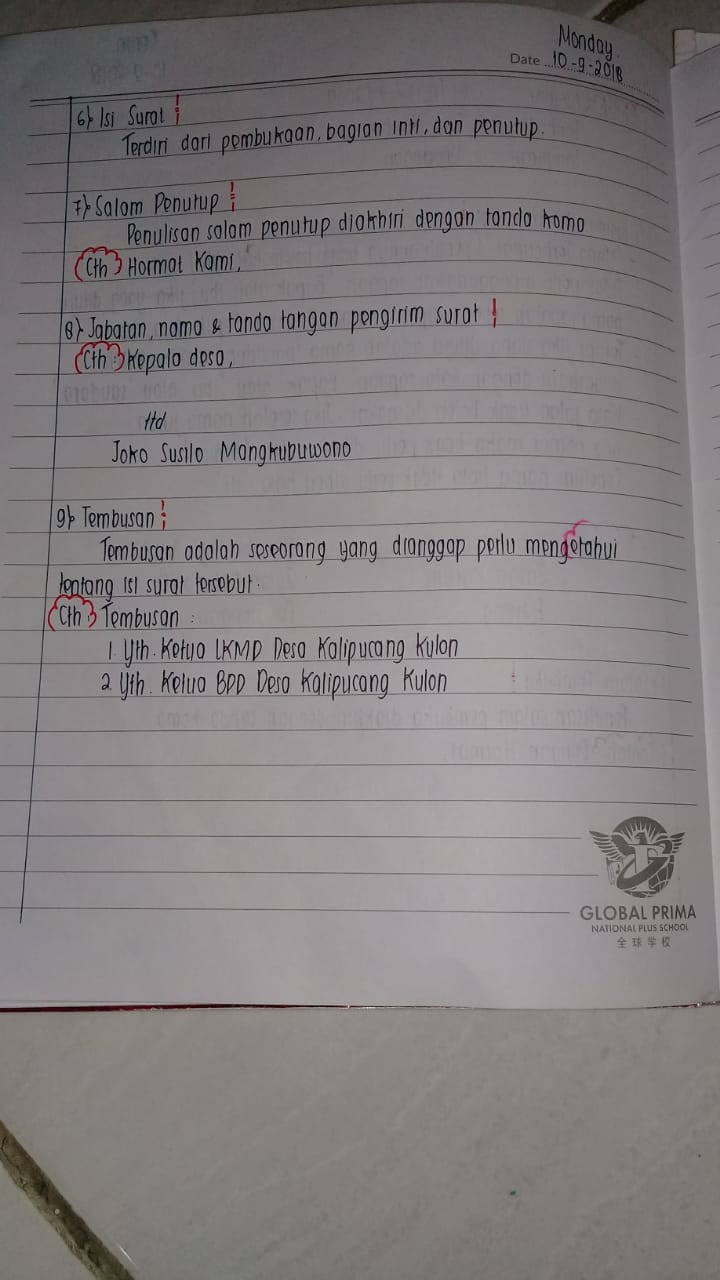 Monday
Date 10-9-2018
6) Isi Surat :
Terdiri dari pembukaan, bagian inti, dan penutup.
7) Salam Penutup :
Penulisan salam penutup diakhiri dengan tanda koma
(Cth:) Hormat Kami,
8) Jabatan, nama & tanda tangan pengirim surat :
(Cth:) Kepala desa,
ttd
Joko Susilo Mangkubuwono
9) Tembusan :
Tembusan adalah seseorang yang dianggap perlu mengetahui
tentang isi surat tersebut.
(Cth:) Tembusan :
1. Yth. Ketua LKMD Desa Kalipucang Kulon
2. Yth. Ketua BPD Desa Kalipucang Kulon
GLOBAL PRIMA
NATIONAL PLUS SCHOOL
全球学校